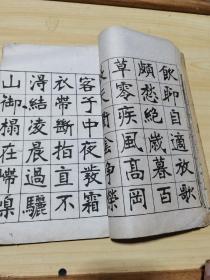 飲聊自適放歌
頗愁絕歲暮百
草零疾風高岡
客子中夜發霜
衣帶斷指直不
淂結凌晨過驪
山御榻在